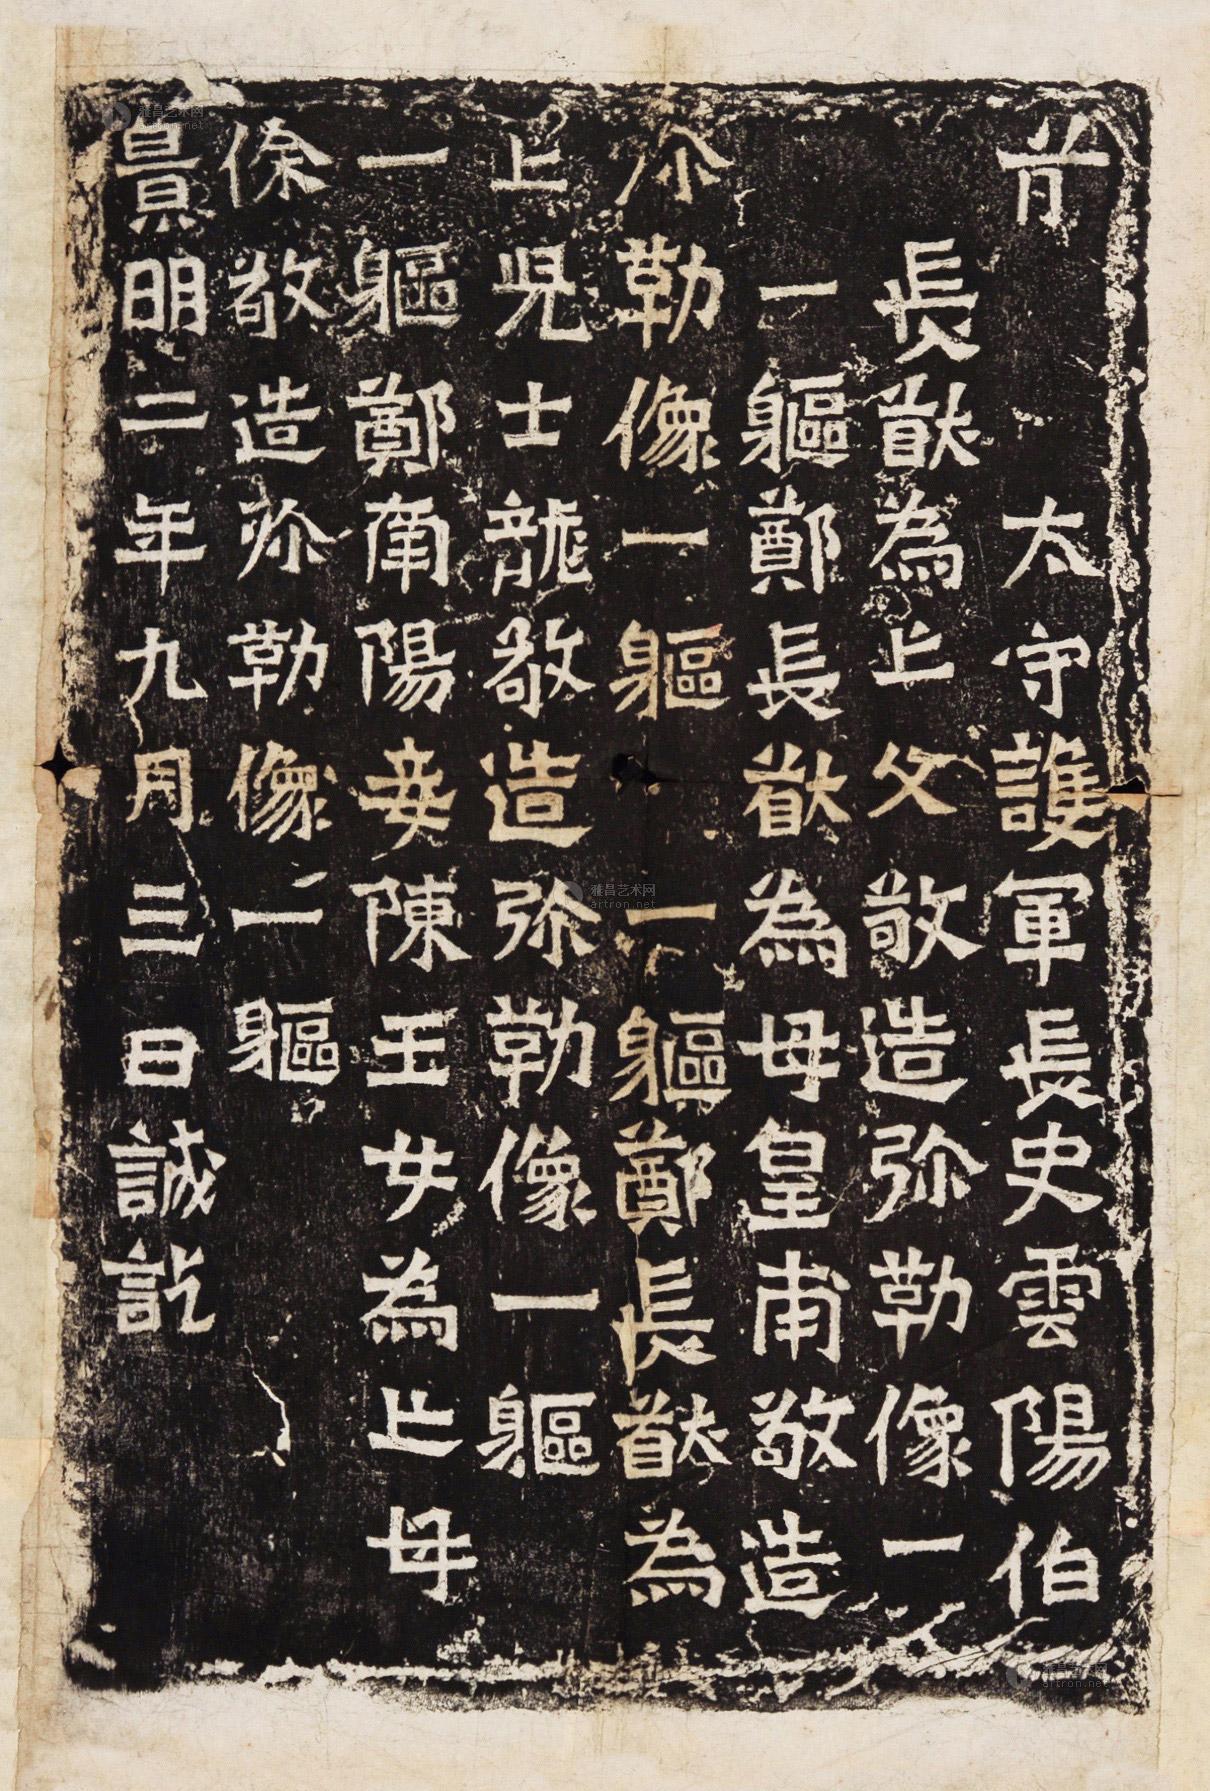 前 太守護軍長史雲陽伯
長猷為亡父敬造弥勒像一
一軀鄭長猷為母皇甫敬造
弥勒像一軀一軀鄭長猷為
亡兒士龍敬造弥勒像一軀
一軀鄭南陽妾陳玉女為亡母
徐敬造弥勒像一軀
景明二年九月三日誠訖
雅昌艺术网
artron.net
雅昌艺术网
artron.net
雅昌艺术网
artron.net